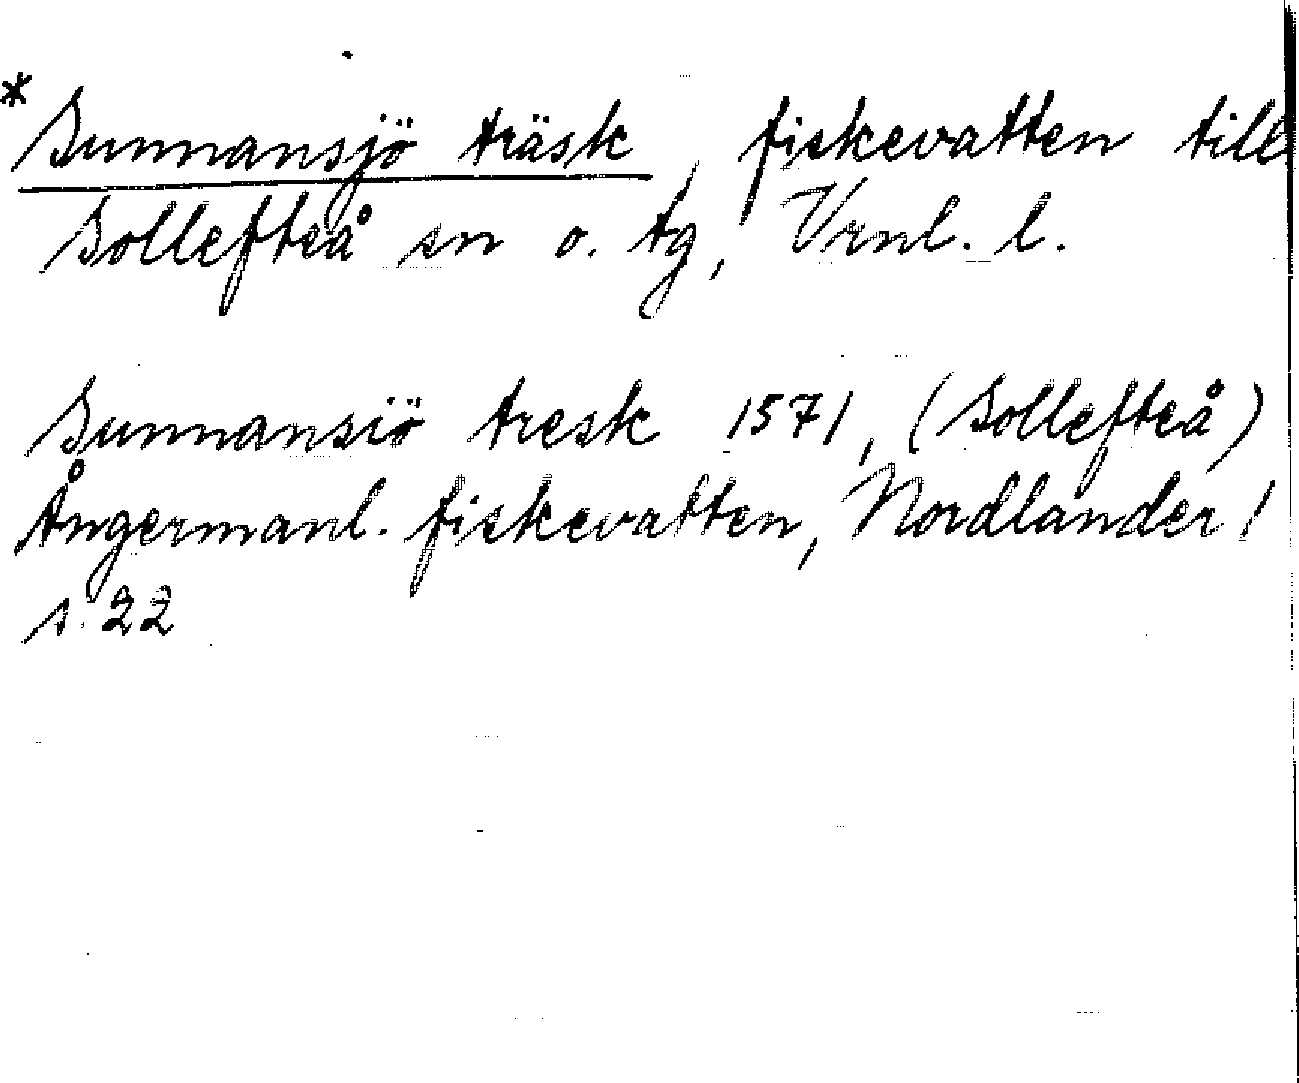 * Sunnansjö träsk, fiskevatten till
Sollefteå sn o. tg, Vrnl. l.
Sunnansiö tresk 1571, (Sollefteå)
Ångermanl. fiskevatten, Nordlander 1
s. 22